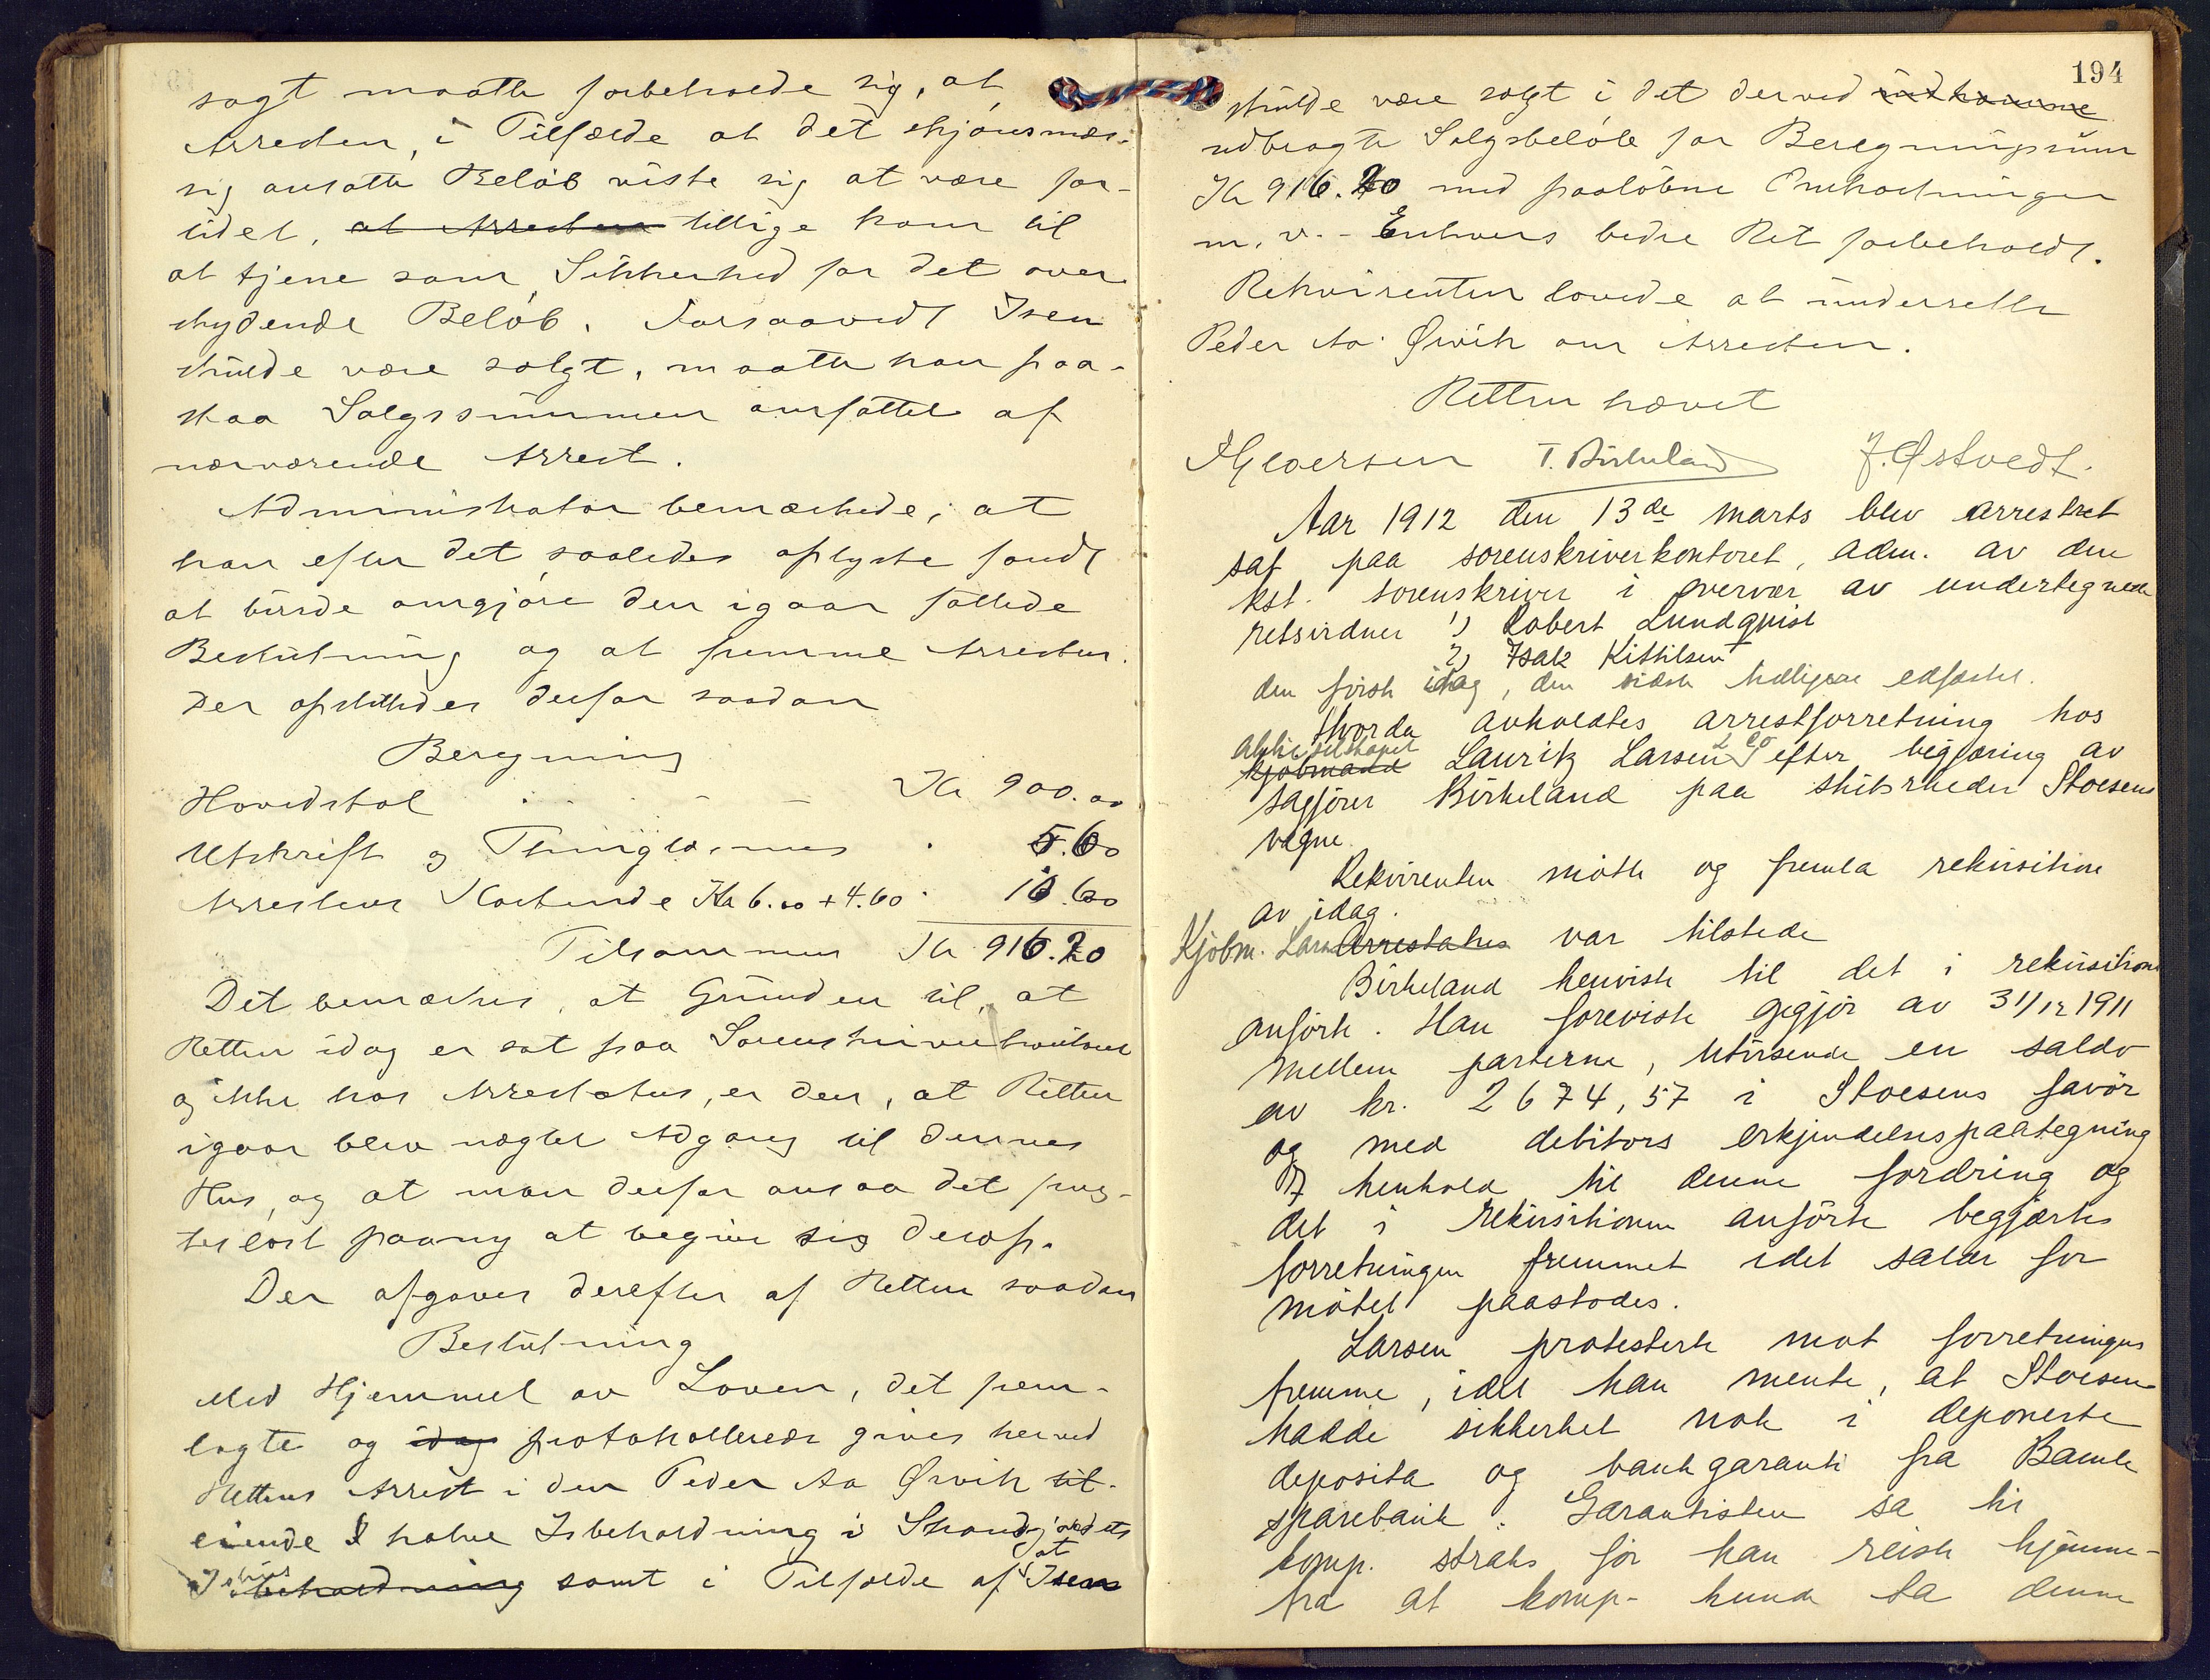 sagt maatte forbeholde sig, at
Arresten, i Tilfælde at det skjønsmæs-
sig ansatte Beløb viste sig at være for
lidet, at Arresten tillige kom til
at tjene som Sikkerhed for det over
skydende Beløb. Forsaavidt Isen
skulde være solgt, maatte han paa-
staa Salgssummen omfattet af
nærværende Arrest.
Administrator bemærkede, at
han efter det saaledes oplyste fandt
at burde omgjøre den igaar fattede
Beslutning og at fremme Arresten.
Der opstilledes derfor saadan
Beregning
Hovedstol Kr 900.00
Utskrift og 5.60
Arrestens Kostende Kr 6.00 + 4.60 10.60
Tilsammen Kr 916.20
Det bemærkes, at Grunden til, at
Retten idag er sat paa Sorenskriverkontoret
og ikke hos Arrestatus, er den, at Retten
igaar blev nægtet Adgang til dennes
Hus, og at man derfor ansaa det frug-
tesløst paany at begive sig derop.
Der afgaves derefter af Retten saadan
Beslutning
Med Hjemmel av Loven, det frem-
lagte og idag protokollerede gives herved
Rettens Arrest i den Peder Aa Ørvik til-
eiende halve Isbeholdning i
Ishus beholdning samt i Tilfælde af at Isen
194
skulde være solgt i det derved indkomne
udbragte Salgsbeløb for Beregningssum
Kr 916.20 med paaløbne Omkostninger
m. v. - Enhvers bedre Ret forbeholdt.
Rekvirenten lovede at underrette
Peder Aa. Ørvik om Arresten.
Retten hævet
T. Birkeland J. Østvedt.
Aar 1912 den 13de marts blev arrestret
sat paa sorenskriverkontoret, adm. av den
kst. sorenskriver i overvær av undertegnede
retsvidner 1) Robert Lundqvist
2) Isak Kittilsen
den første idag, den sidste tidligere edfæstet.
Hvorda avholdtes arrestforretning hos
aktieselskapet kjøbmand Lauritz Larsen & Co efter begjæring av
sagfører Birkeland paa skibsrheder Stoesens
vegne.
Rekvirenten møtte og fremla rekvisition
av idag.
Kjøbm. Larsen Arrestatus var tilstede
Birkeland henviste til det i rekvisitionen
anførte. Han foreviste opgjør av 31/12 1911
mellem parterne, utvisende en saldo
av kr. 2674,57 i Stoesens favør
og med debitors erkjendelsespaategning
I henhold til denne fordring og
det i rekvisitionen anførte begjærtes
forretningen fremmet idet salær for
møtet paastodes.
Larsen protesterte mot forretningens
fremme, idet han mente, at Stoesen
hadde sikkerhet nok i deponerte
deposita og bankgaranti fra Bamle
sparebank. Garantisten sa til
komp. straks før han reiste hjemme-
fra at komp. kunde ta denne